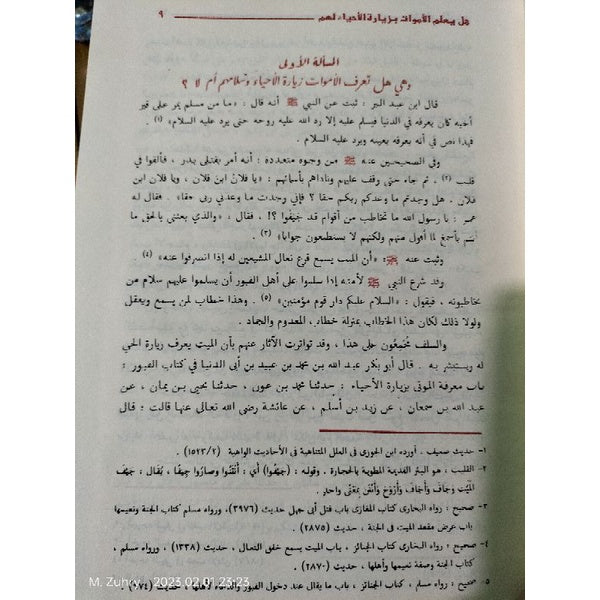 هل يعلم الأموات بزيارة الأحياء لهم ٩
المسألة الأولى
وهي هل تعرف الأموات زيارة الأحياء وسلامهم أم لا ؟
قال ابن عبد البر : ثبت عن النبي ﷺ أنه قال : «ما من مسلم يمر على قبر
أخيه كان يعرفه في الدنيا فيسلم عليه إلا رد الله عليه روحه حتى يرد عليه السلام» (١) .
فهذا نص في أنه يعرفه بعينه ويرد عليه السلام .
وفى الصحيحين عنه ﷺ من وجوه متعددة : أنه أمر بقتلى بدر ، فألقوا في
قليب (٢) ، ثم جاء حتى وقف عليهم وناداهم بأسمائهم : «يا فلان ابن فلان ، ويا فلان ابن
فلان . هل وجدتم ما وعدكم ربكم حقا ؟ فإني وجدت ما وعدني ربى حقا» . فقال له
عمر : يا رسول الله ما تخاطب من أقوام قد جيفوا ؟! ، فقال : «والذي بعثني بالحق ما
أنتم بأسمع لما أقول منهم ولكنهم لا يستطيعون جوابا» (٣) .
وثبت عنه ﷺ : «أن الميت يسمع قرع نعال المشيعين له إذا انصرفوا عنه» (٤) .
وقد شرع النبي ﷺ لأمته إذا سلموا على أهل القبور أن يسلموا عليهم سلام من
يخاطبونه ، فيقول : «السلام عليكم دار قوم مؤمنين» (٥) . وهذا خطاب لمن يسمع ويعقل
ولولا ذلك لكان هذا الخطاب بمنزلة خطاب المعدوم والجماد .
والسلف مُجْمِعُون على هذا ، وقد تواترت الآثار عنهم بأن الميت يعرف زيارة الحي
له ويستبشر به . قال أبو بكر عبد الله بن محمد بن عبيد بن أبى الدنيا في كتاب القبور :
باب معرفة الموتى بزيارة الأحياء : حدثنا محمد بن عون ، حدثنا يحيى بن يمان ، عن
عبد الله بن سمعان ، عن زيد بن أسلم ، عن عائشة رضى الله تعالى عنها قالت : قال
١- حديث ضعيف . أورده ابن الجوزى فى العلل المتناهية فى الأحاديث الواهية (١٥٢٣/٢) .
٢- القليب ، هو البئر القديمة المطوية بالحجارة . وقوله : (جَيَّفُوا) أي : أَنْتَنُوا وصاروا جِيفًا ، يُقال : جَيَّفَ
المَيِّت وجَافَ وأَجَافَ وأَرْوَحَ وأَنْتَنَ بِمَعْنًى واحد .
٣- صحيح : رواه البخارى كتاب المغازى باب قتل أبى جهل حديث (٣٩٧٦)، ورواه مسلم كتاب الجنة ونعيمها
باب عرض مقعد الميت فى الجنة ، حديث (٢٨٧٥) .
٤- صحيح : رواه البخارى كتاب الجنائز ، باب الميت يسمع خفق النعال ، حديث (١٣٣٨) ، ورواه مسلم ،
كتاب الجنة وصفة نعيمها وأهلها ، حديث (٢٨٧٠) .
٥- صحيح : رواه مسلم ، كتاب الجنائز ، باب ما يقال عند دخول القبور والدعاء لأهلها ، حديث (٩٧٤) .
M. Zuhry 2023.02.01 23:23